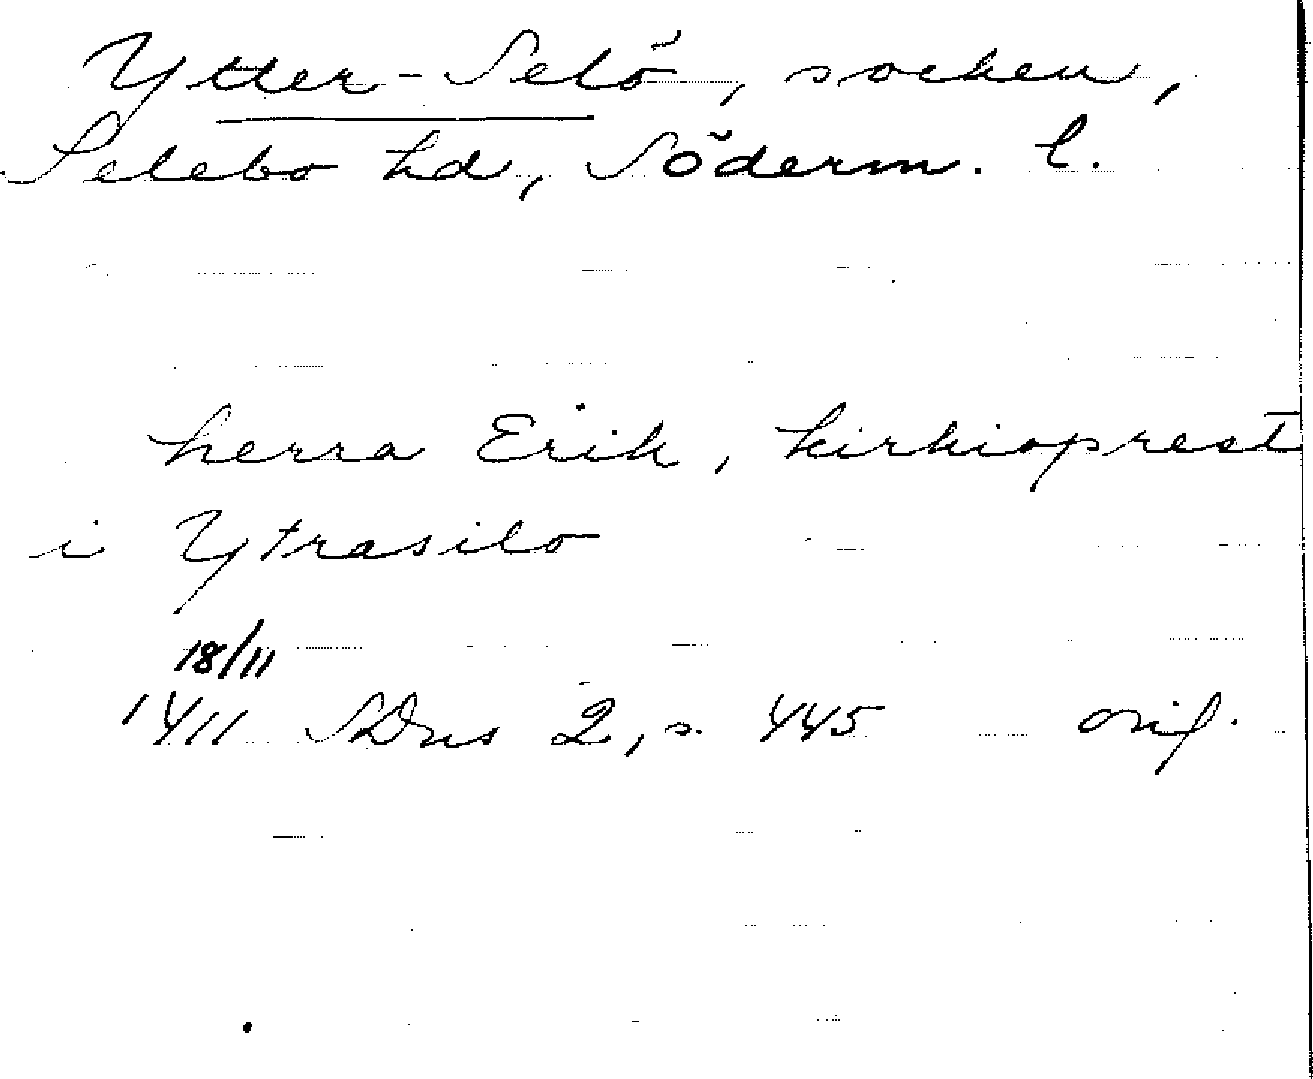 Ytter-Selö, socken,
Selebo hd, Söderm. l.
herra Erik, kirkioprest
i Ytrasilo
18/11
1411 SDns 2, s. 445 orig.